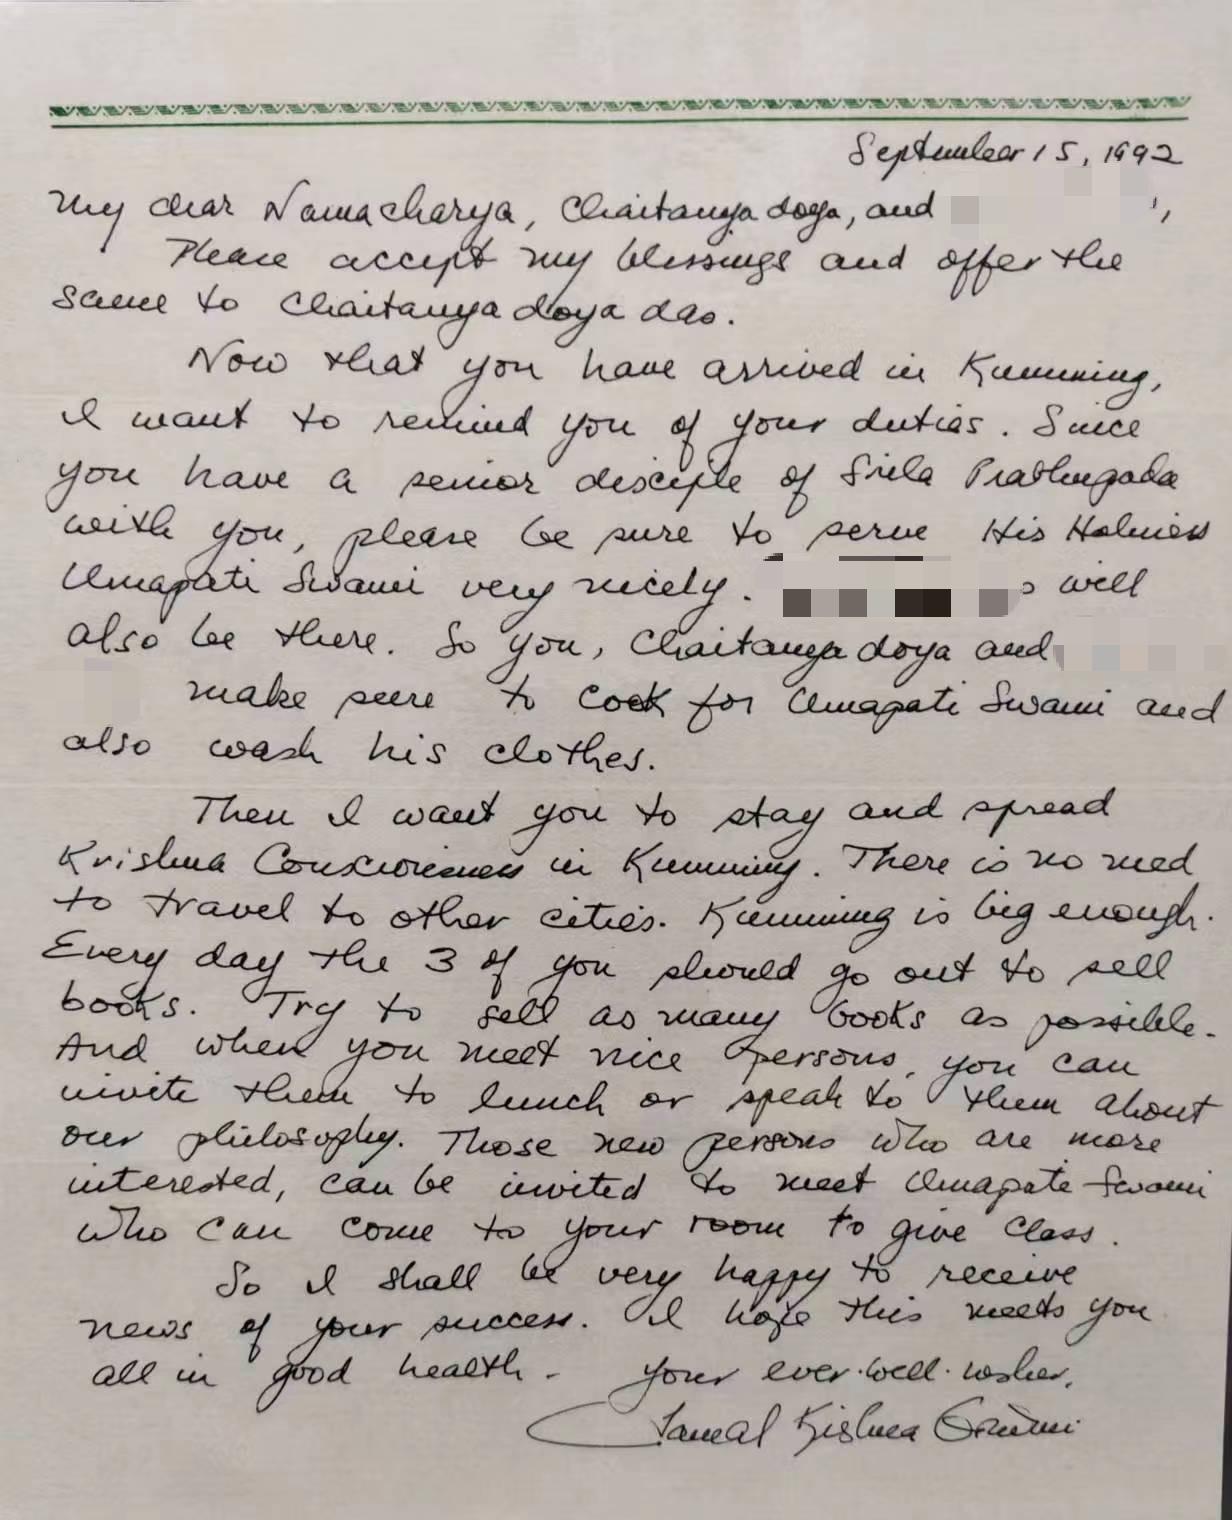 September 15, 1992
My dear Namacharya, Chaitanya doya, and ,
Please accept my blessings and offer the
same to Chaitanya doya das.
Now that you have arrived in Kunming,
I want to remind you of your duties. Since
you have a senior disciple of Srila Prabhupada
with you, please be sure to serve His Holiness
Umapati Swami very nicely. will
also be there. So you, Chaitanya doya and
make sure to cook for Umapati Swami and
also wash his clothes.
Then I want you to stay and spread
Krishna Consciousness in Kunming. There is no need
to travel to other cities. Kunming is big enough.
Every day the 3 of you should go out to sell
books. Try to sell as many books as possible.
And when you meet nice persons, you can
invite them to lunch or speak to them about
our philosophy. Those new persons who are more
interested, can be invited to meet Umapati Swami
who can come to your room to give class.
So I shall be very happy to receive
news of your success. I hope this meets you
all in good health. Your ever-well-wisher,
Tamal Krishna Goswami